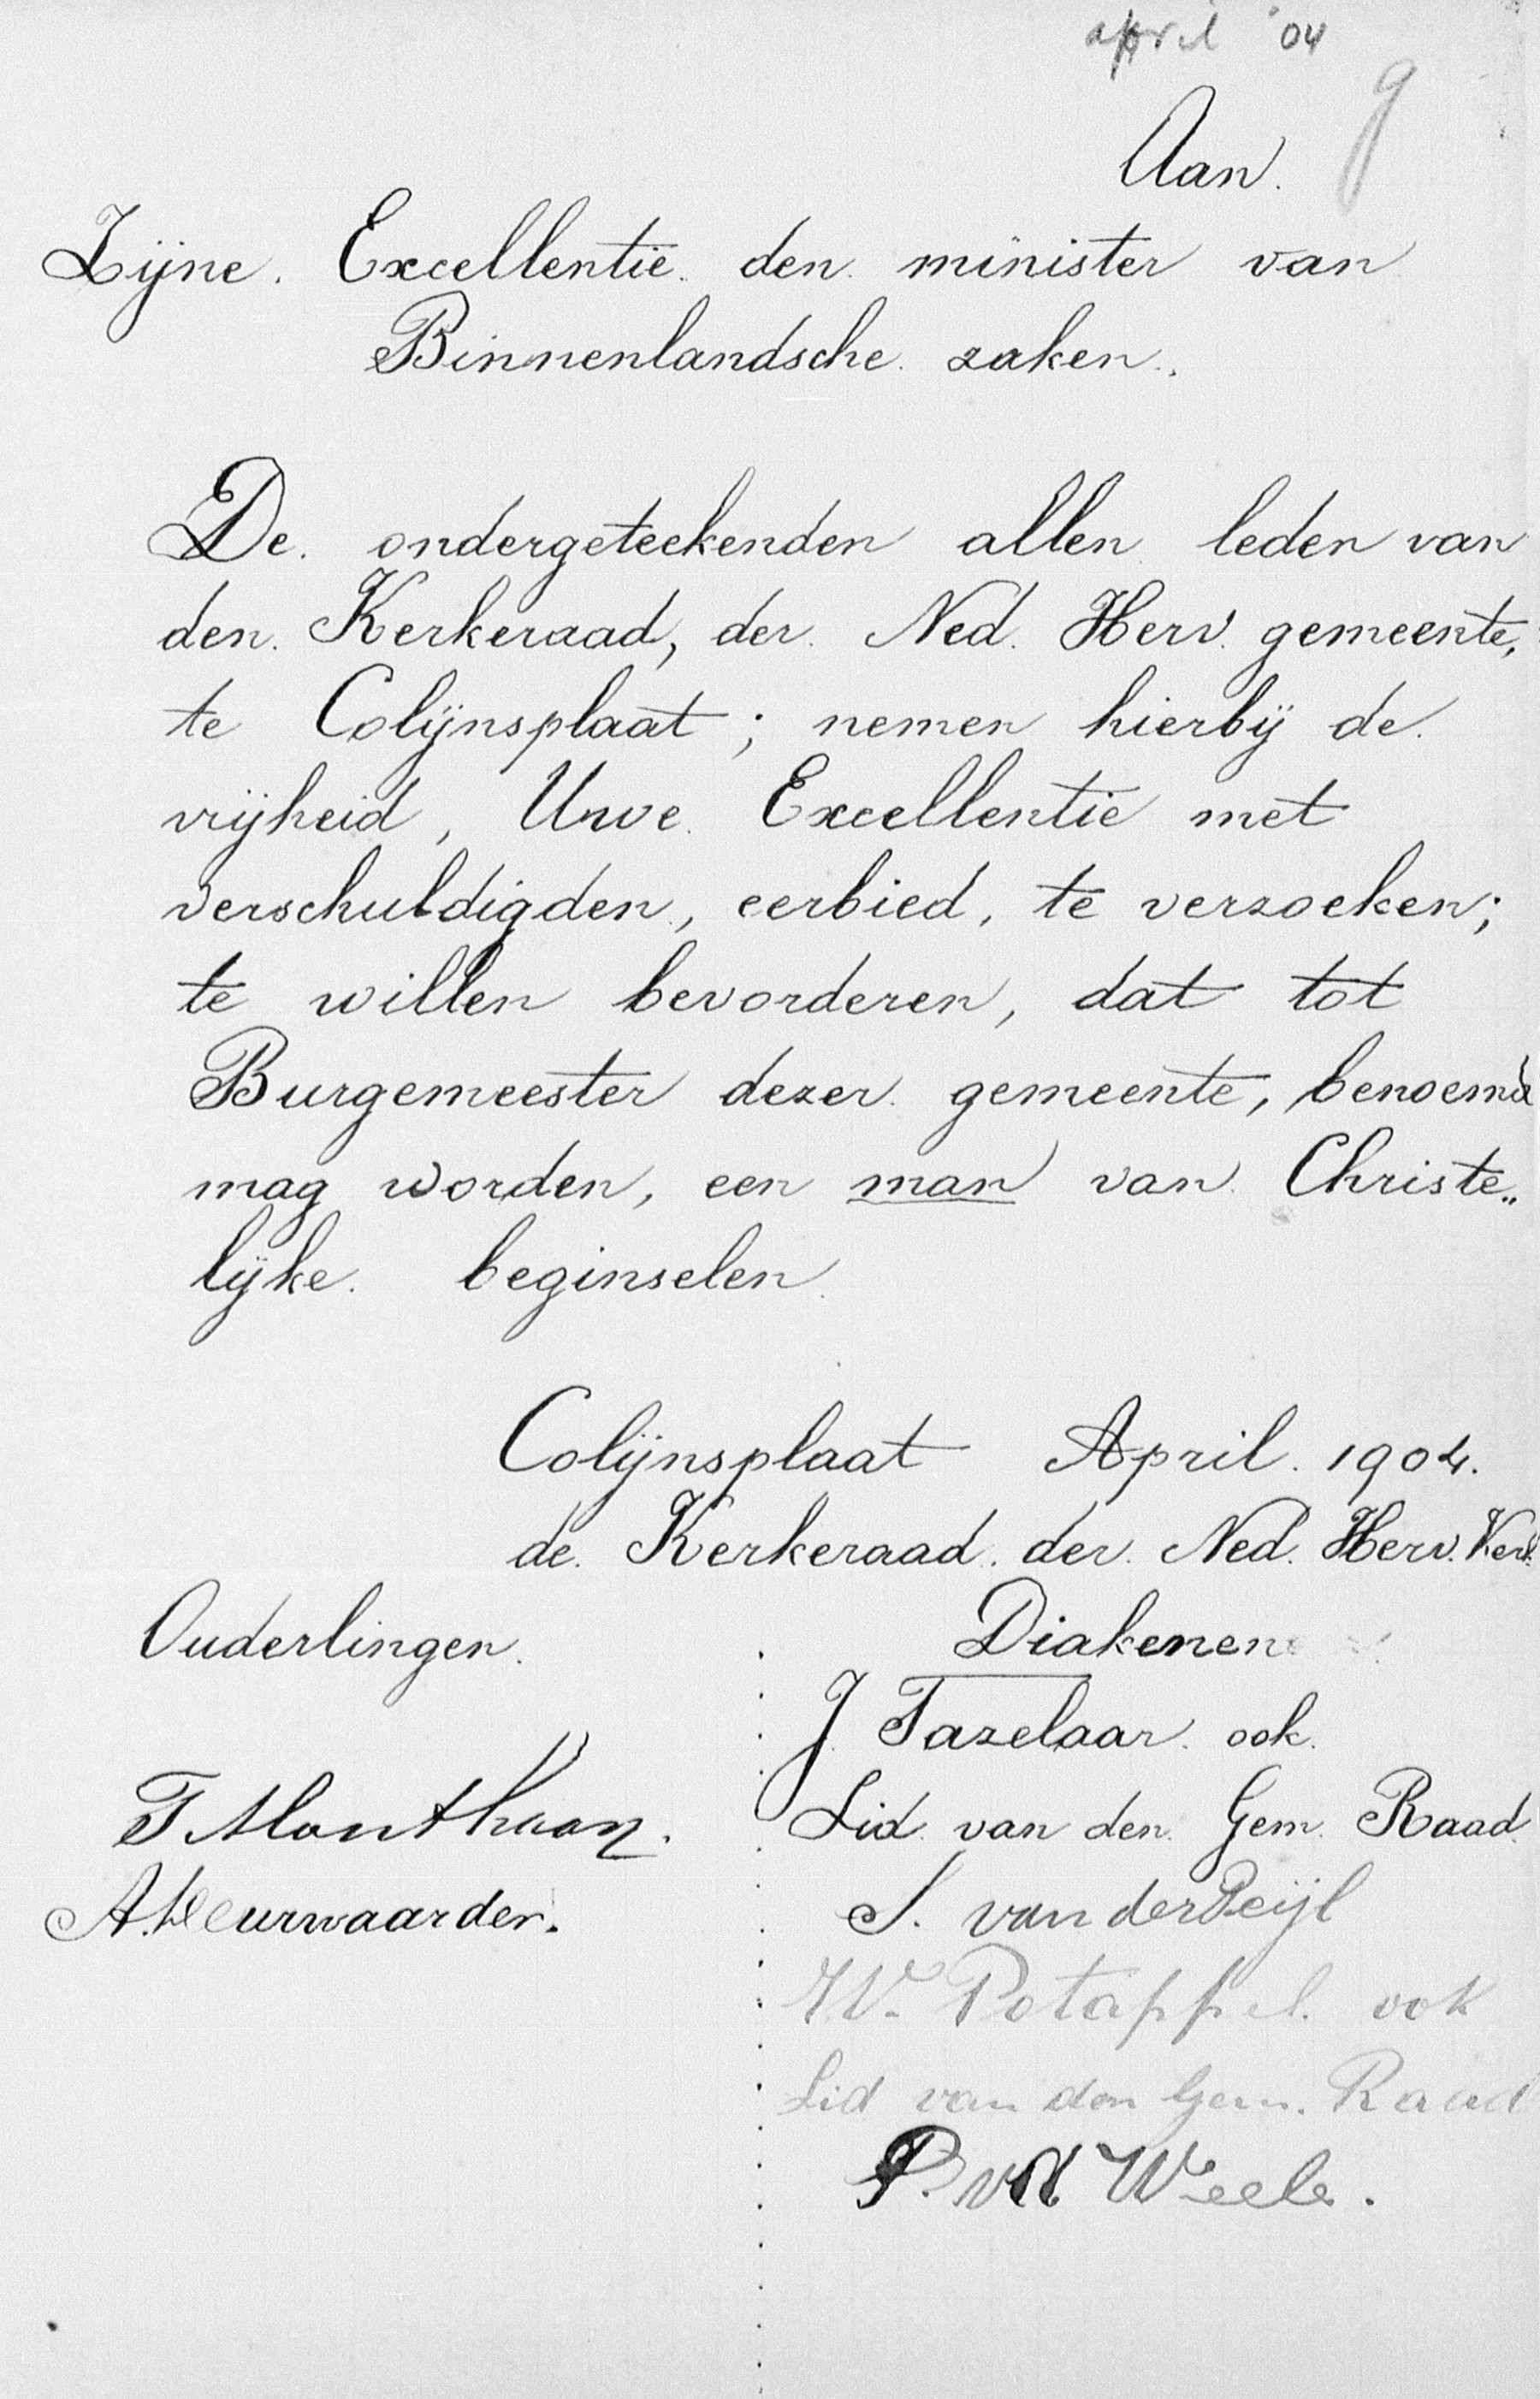 april '04
g
Aan.
Zijne. Excellentie. den minister van
Binnenlandsche. zaken.
De. ondergeteekenden allen leden van
den. Kerkeraad, der. Ned. Herv. gemeente,
te Colijnsplaat; nemen hierbij de.
vrijheid, Uwe. Excellentie met
verschuldigden, eerbied, te verzoeken;
te willen bevorderen, dat tot
Burgemeester dezer. gemeente, benoemd
mag worden, een man van Christe„
lijke. beginselen.
Colijnsplaat April. 1904.
de. Kerkeraad. der. Ned. Herv. Kerk.
Ouderlingen.
T Monthaan.
A. Deurwaarder.
Diakenen
J. Tazelaar. ook.
Lid. van den. Gem. Raad.
S. van der Peijl
W. Potappel. ook
Lid van den Gem. Raad
P. vd Weele.